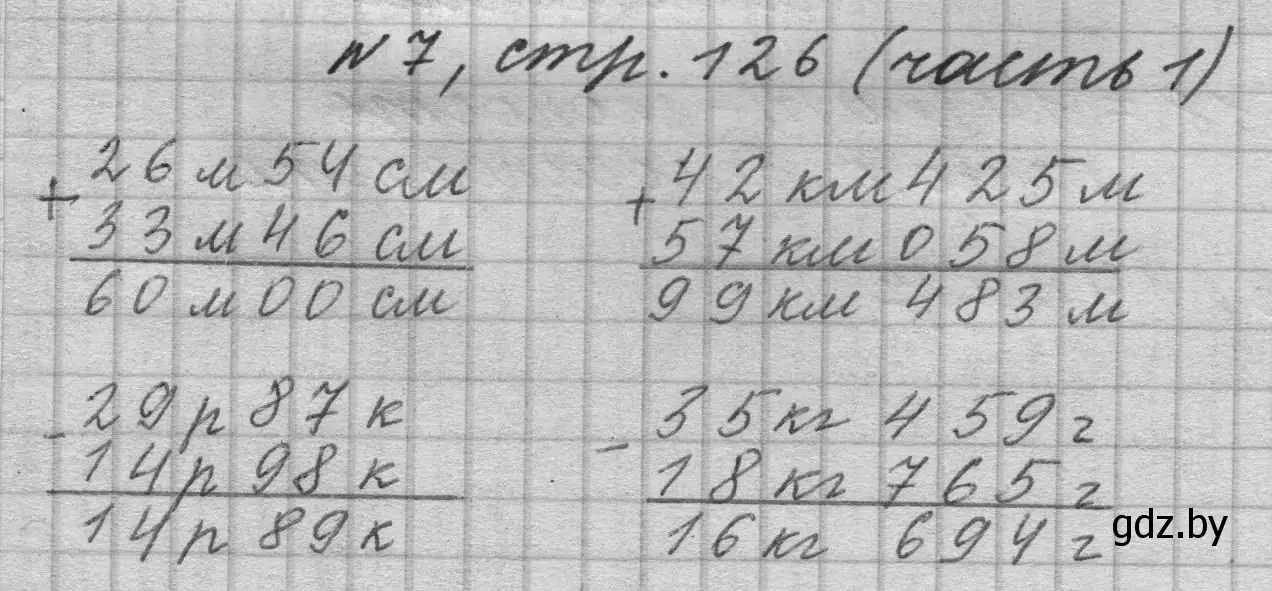 №7, стр. 126 (часть 1)
+ 26 м 54 см
33 м 46 см
60 м 00 см
+ 42 км 425 м
57 км 058 м
99 км 483 м
- 29 р 87 к
14 р 98 к
14 р 89 к
- 35 кг 459 г
18 кг 765 г
16 кг 694 г
gdz.by